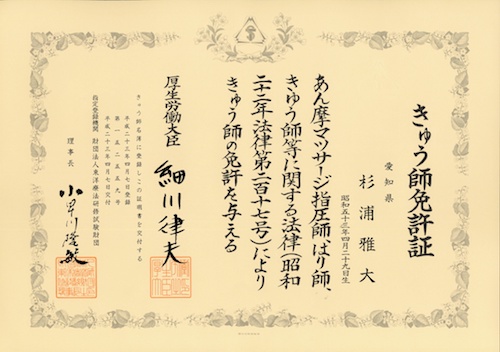 きゅう師免許証
愛知県
杉浦雅大
昭和五十三年四月二十九日生
あん摩マツサージ指圧師、はり師、
きゆう師等に関する法律(昭和
二十二年法律第二百十七号)により
きゅう師の免許を与える
厚生労働大臣
細川律夫
きゅう師名簿に登録しこの証明書を交付する
平成二十三年四月七日登録
第一五二五五九号
平成二十三年四月七日交付
指定登録機関 財団法人東洋療法研修試験財団
理事長